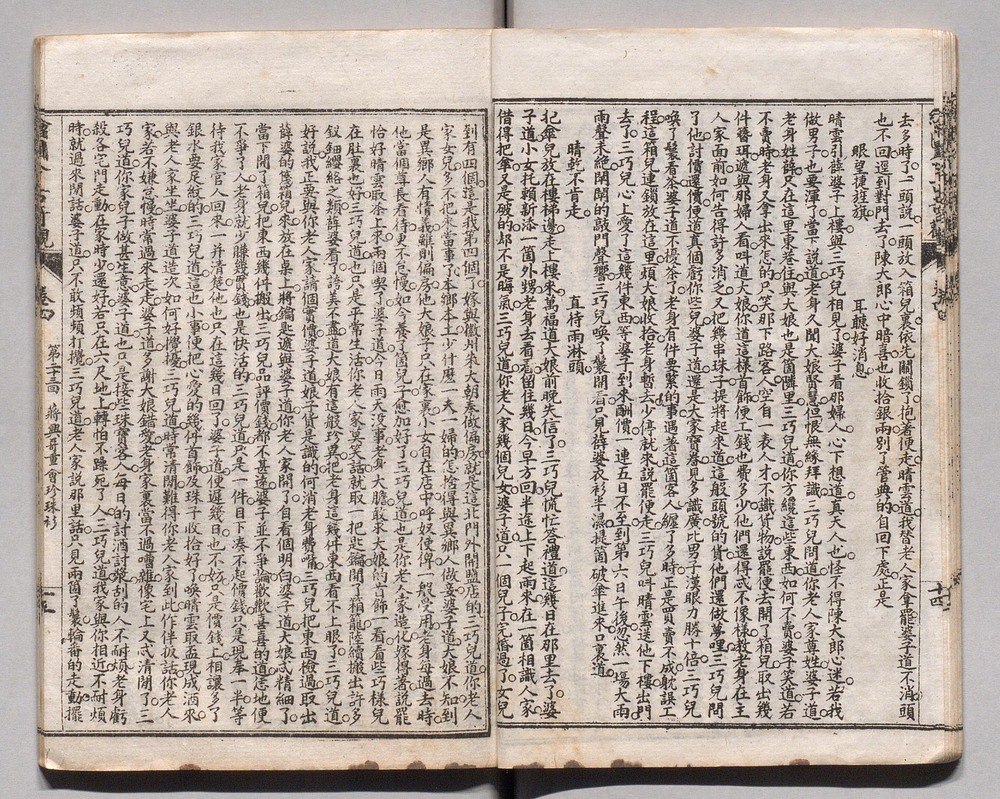 去多時了一頭說一頭放入箱兒裏依先關鎖了抱着便走晴雲道我替老人家拿罷婆子道不消頭
也不回逕到對門去了陳大郎心中暗喜也收拾銀兩別了管典的自回下處正是
眼望捷旌旗　耳聽好消息
晴雲引薛婆子上樓與三巧兒相見了婆子看那婦人心下想道真天人也怪不得陳大郎心迷若我
做男子也要渾了當下說道老身久聞大娘賢慧但恨無緣拜識三巧兒問道你老人家尊姓婆子道
老身姓薛只在這里東巷住與大娘也是箇隣里三巧兒道你方纔這些東西如何不賣婆子笑道若
不賣時老身又拿出來怎的只笑那下路客人空自一表人才不識貨物說罷便去開了箱兒取出幾
件簪珥遞與那婦人看叫道大娘你道這樣首飾便工錢也費多少他們還得忒不像樣教老身在主
人家面前如何告得許多消乏又把幾串珠子提將起來道這般頭號的貨他們還做夢哩三巧兒問
了他討價還價便道真個虧你些兒婆子道還是大家寶眷見多識廣比男子漢眼力勝十倍三巧兒
喚丫鬟看茶婆子道不擾茶了老身有件要緊的事遇着這箇客人纏了多時正是買賣不成躭誤工
程這箱兒連鎖放在這里煩大娘收拾老身暫去少停就來說罷便走三巧兒叫晴雲送他下樓出門
去了三巧兒心上愛了這幾件東西專等婆子到來酬價一連五日不至到第六日午後忽然一場大雨
雨聲未絕閛閛的敲門聲響三巧兒喚丫鬟開看只見薛婆衣衫半濕提箇破傘進來口裏道
晴乾不肯走　直待雨淋頭
把傘兒放在樓梯邊走上樓來萬福道大娘前晚失信了三巧兒慌忙答禮道這幾日在那里去了婆
子道小女托賴新添一箇外甥老身去看看留住幾日今早方回半途上下起雨來在一箇相識人家
借得把傘又是破的却不是晦氣三巧兒道你老人家幾個兒女婆子道只一個兒子完婚過了女兒
到有四個這是我第四個了嫁與徽州朱大朝奉做偏房就是這北門外開鹽店的三巧兒道你老人
家女兒多不把來當事了本鄉本土少什麽一夫一婦的怎捨得與異鄉人做妾婆子道大娘不知到
是異鄉人有情義雖則偏房他大娘子只在家裏小女自在店中呼奴使婢一般受用老身每過去時
他當個尊長看待更不怠慢如今養了箇兒子愈加好了三巧兒道也是你老人家造化嫁得著說罷
恰好晴雲取茶上來兩個喫了婆子道今日雨天沒事老身大膽敢求大娘的首飾一看看些巧樣兒
在肚裏也好三巧兒道也只是平常生活你老人家莫笑話就取一把匙鑰開了箱籠陸續搬出許多
釵鈿纓絡之類薛婆看了誇美不盡道大娘有這般珍異把老身這幾件東西看不上眼了三巧兒道
好說我正要與你老人家請個實價婆子道娘子是識貨的何消老身費嘴三巧兒把東西檢過取出
薛婆的篾箱兒來放在桌上將鑰匙遞與婆子道你老人家開了自看個明白婆子道大娘忒精細了
當下開了箱兒把東西幾件搬出三巧兒品評價錢都不甚遠婆子並不爭論歡歡喜喜的道恁地便
不爭了人老身就少賺幾貫錢也是快活的三巧兒道只是一件目下凑不起價錢只是現奉一半等
待我家官人回來一并清楚他也只在這幾日回了婆子道便遲幾日也不妨只是價錢上相讓多了
銀水要足紋的三巧兒道這也小事便把心愛的幾件首飾及珠子收拾好了喚晴雲取盃現成酒來
與老人家坐坐婆子道造次如何好攪擾三巧兒道時常清閒難得你老人家到此作伴扳話你老人
家若不嫌怠慢時常過來走走婆子道多謝大娘錯愛老身家裏當不過嘈雜像宅上又忒清閒了三
巧兒道你家兒子做甚生意婆子道也只是接些珠寶客人每日的討酒討漿刮的人不耐煩老身虧
殺各宅門走動在家時少還好若只在六尺地上轉怕不躁死了人三巧兒道我家與你相近不耐煩
時就過來閒話婆子道只不敢頻頻打攪三巧兒道老人家說那里話只見兩箇丫鬟輪番的走動擺
卷四
第二十三回　蔣興哥重會珍珠衫